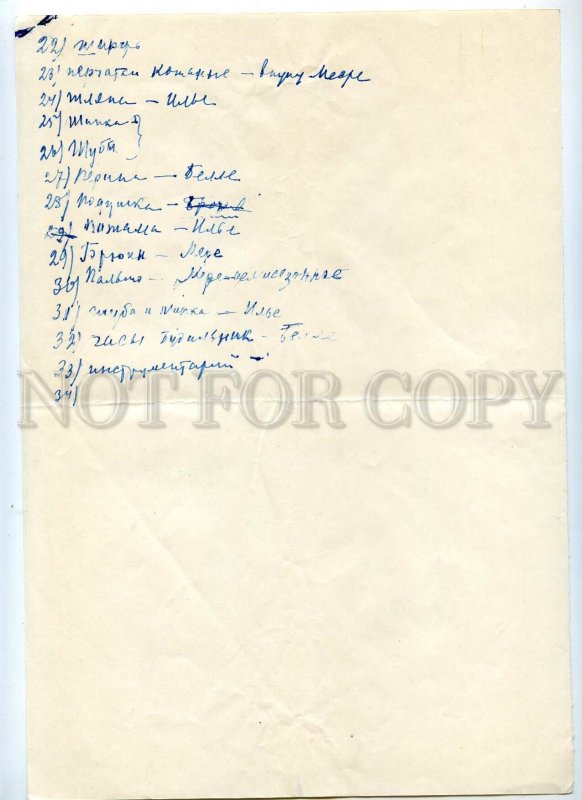 22)
23) перчатки кожаные — внуку
24) шляпа — Илье
25) шапка }
26) Шуба
27) Перина — Белле
28) Подушка —
29) Пижама — Илье
29) Брюки —
30) Пальто —
31) шуба и шапка — Илье
32) часы будильник — Белле
33) инструментарий
NOT FOR COPY
34)